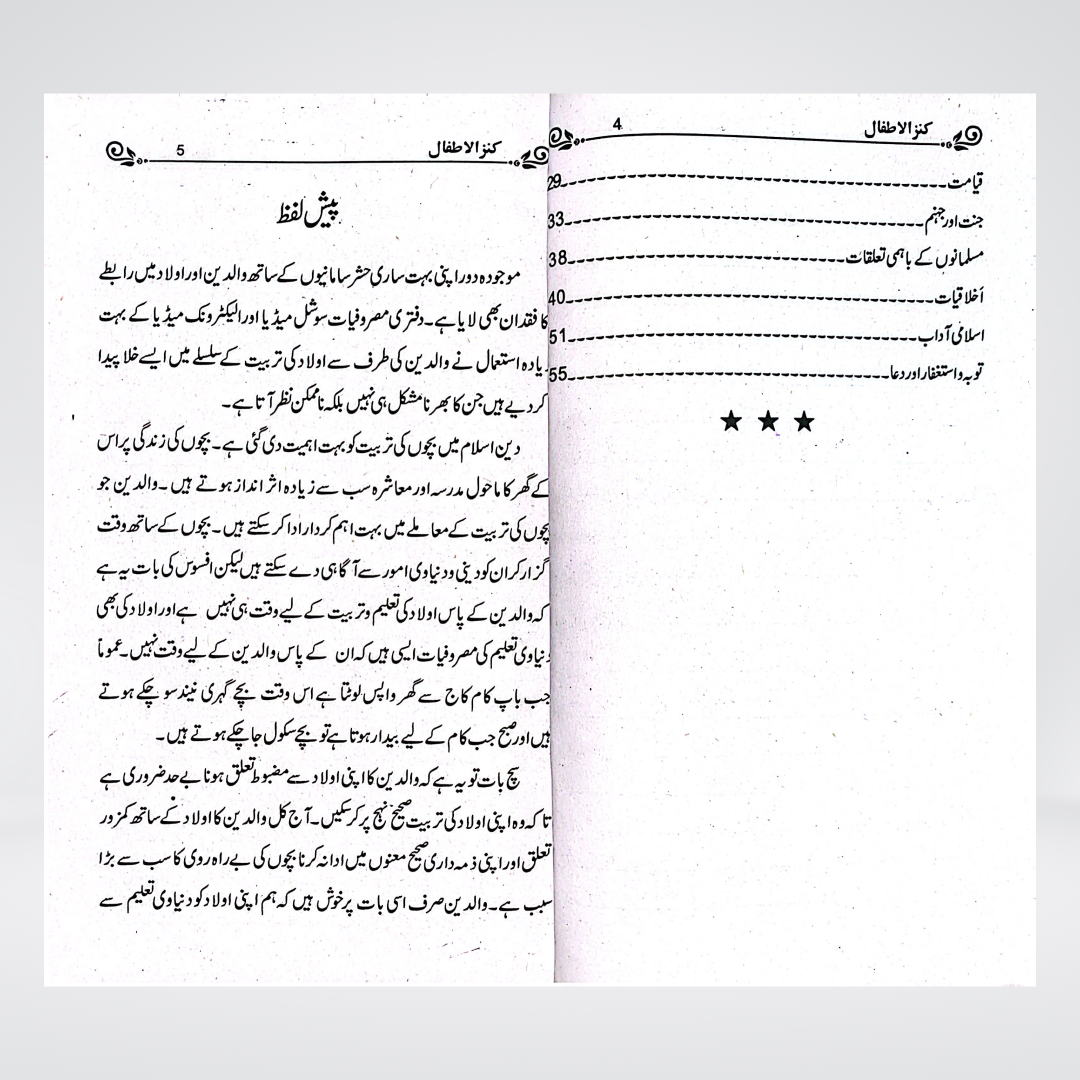 کنز الاطفال 4
قیامت 29
جنت اور جہنم 33
مسلمانوں کے باہمی تعلقات 38
اخلاقیات 40
اسلامی آداب 51
توبہ و استغفار اور دعا 55
کنز الاطفال 5
پیش لفظ
موجودہ دور اپنی بہت ساری حشر سامانیوں کے ساتھ والدین اور اولاد میں رابطے
کا فقدان بھی لایا ہے۔ دفتری مصروفیات سوشل میڈیا اور الیکٹرونک میڈیا کے بہت
زیادہ استعمال نے والدین کی طرف سے اولاد کی تربیت کے سلسلے میں ایسے خلا پیدا
کر دیے ہیں جن کا بھرنا مشکل ہی نہیں بلکہ ناممکن نظر آتا ہے۔
دین اسلام میں بچوں کی تربیت کو بہت اہمیت دی گئی ہے۔ بچوں کی زندگی پر اس
کے گھر کا ماحول مدرسہ اور معاشرہ سب سے زیادہ اثر انداز ہوتے ہیں۔ والدین جو
بچوں کی تربیت کے معاملے میں بہت اہم کردار ادا کر سکتے ہیں۔ بچوں کے ساتھ وقت
گزار کر ان کو دینی و دنیاوی امور سے آگاہی دے سکتے ہیں لیکن افسوس کی بات یہ ہے
کہ والدین کے پاس اولاد کی تعلیم و تربیت کے لیے وقت ہی نہیں ہے اور اولاد کی بھی
دنیاوی تعلیم کی مصروفیات ایسی ہیں کہ ان کے پاس والدین کے لیے وقت نہیں۔ عموماً
جب باپ کام کاج سے گھر واپس لوٹتا ہے اس وقت بچے گہری نیند سو چکے ہوتے
ہیں اور صبح جب کام کے لیے بیدار ہوتا ہے تو بچے سکول جا چکے ہوتے ہیں۔
سچ بات تو یہ ہے کہ والدین کا اپنی اولاد سے مضبوط تعلق ہونا بے حد ضروری ہے
تا کہ وہ اپنی اولاد کی تربیت صحیح نہج پر کر سکیں۔ آج کل والدین کا اولاد کے ساتھ کمزور
تعلق اور اپنی ذمہ داری صحیح معنوں میں ادا نہ کرنا بچوں کی بے راہ روی کا سب سے بڑا
سبب ہے۔ والدین صرف اسی بات پر خوش ہیں کہ ہم اپنی اولاد کو دنیاوی تعلیم سے